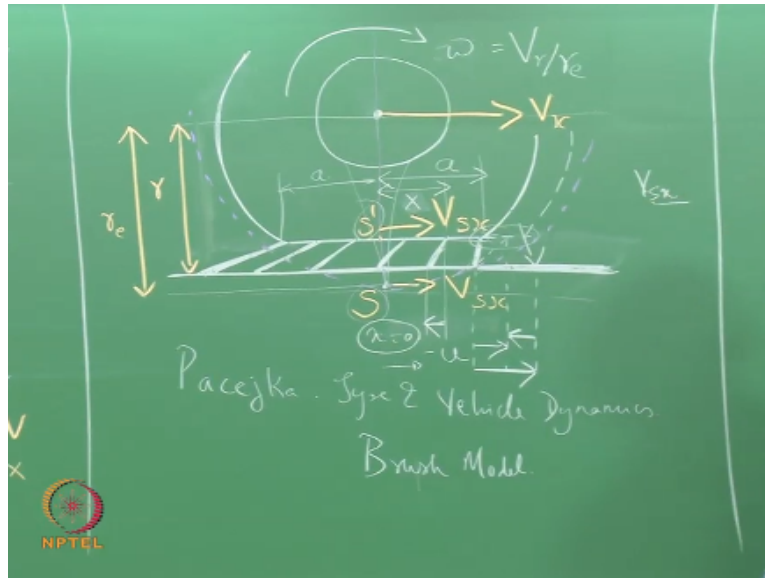 ω = Vr/re
Vx
a a
re r x Vsx
S' Vsx
S Vsx
x=0
-u
Pacejka. Tyre & Vehicle Dynamics
Brush Model.
V
x
NPTEL